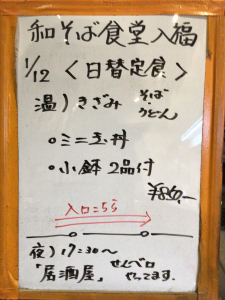 和そば食堂入福
1/12 <日替定食>
温)きざみ そば・うどん
○ミニ玉丼
○小鉢2品付
入口こちら
夜)17:30〜
「居酒屋」せんべろ
やってます。